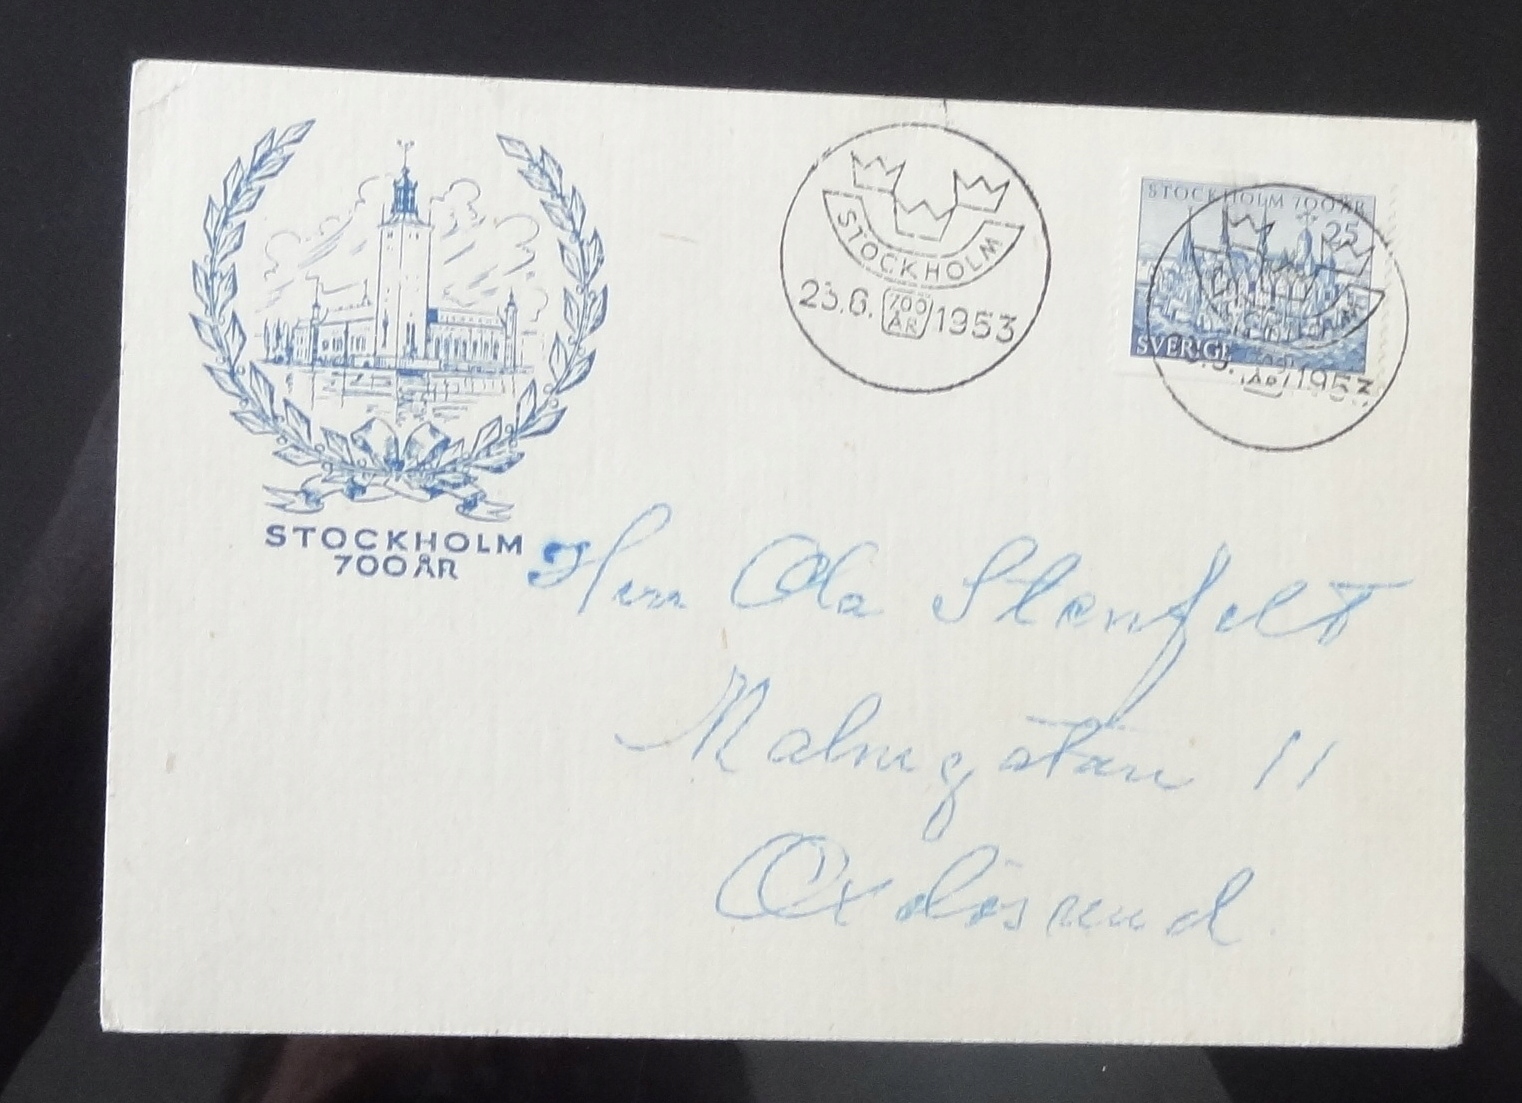 STOCKHOLM
700 ÅR
STOCKHOLM
23.6. 700 ÅR 1953
STOCKHOLM 700 ÅR
25
SVERIGE
STOCKHOLM
23.6. 700 ÅR 1953
Herr Ola Stenfelt
Malmgatan 11
Oxelösund